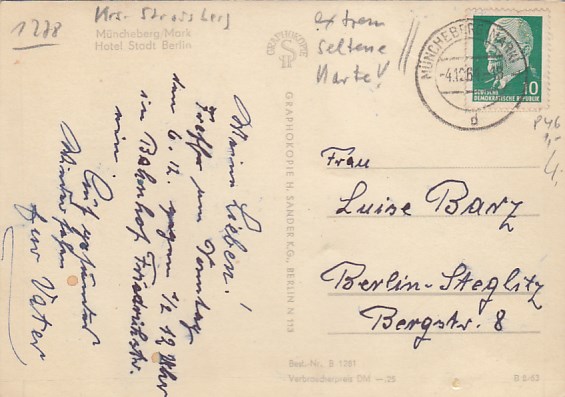 1278
Krs. Strausberg
Müncheberg/Mark
Hotel Stadt Berlin
extrem
seltene
Karte!
GRAPHOKOPIE
MÜNCHEBERG (MARK)
-4.12.6
d
10
DEUTSCHE
DEMOKRATISCHE REPUBLIK
P46
1,-
4,-
Meine Lieben!
Treffe am Sonntag
den 6.12. gegen 1/2 12 Uhr
in Bahnhof Friedrichstr.
ein.
Auf gesundes
Wiedersehen
Euer Vater
GRAPHOKOPIE H. SANDER K.G., BERLIN N 113
Frau
Luise Barz
Berlin-Steglitz
Bergstr. 8
Best.-Nr. B 1281
Verbraucherpreis DM —.25
B 8/63